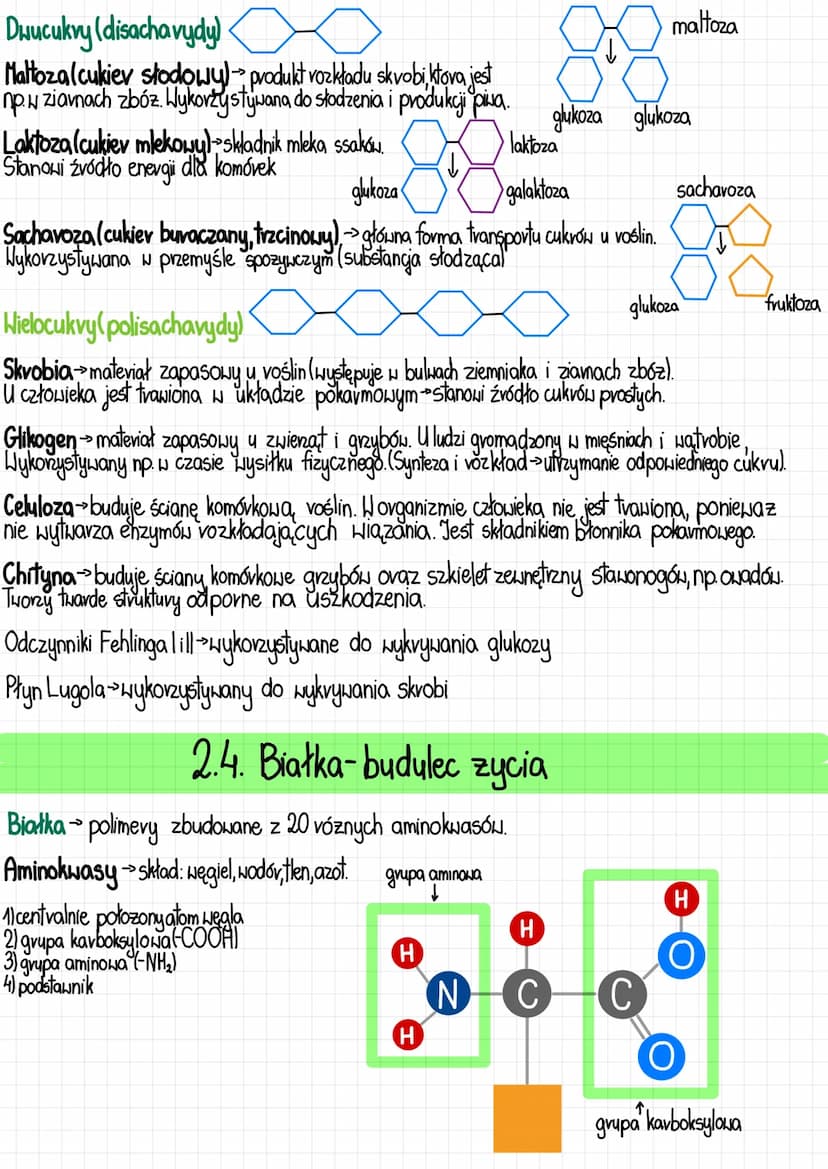 Dwucukry (disacharydy)
maltoza
Maltoza (cukier słodowy) → produkt rozkładu skrobi, która jest
np. w ziarnach zbóż. Wykorzystywana do słodzenia i produkcji piwa.
glukoza glukoza
Laktoza (cukier mlekowy) → składnik mleka ssaków.
Stanowi źródło energii dla komórek
laktoza
glukoza galaktoza
sacharoza
Sacharoza (cukier buraczany, trzcinowy) → główna forma transportu cukrów u roślin.
Wykorzystywana w przemyśle spożywczym (substancja słodząca)
glukoza fruktoza
Wielocukry (polisacharydy)
Skrobia → materiał zapasowy u roślin (występuje w bulwach ziemniaka i ziarnach zbóż).
U człowieka jest trawiona w układzie pokarmowym → stanowi źródło cukrów prostych.
Glikogen → materiał zapasowy u zwierząt i grzybów. U ludzi gromadzony w mięśniach i wątrobie.
Wykorzystywany np. w czasie wysiłku fizycznego. (Synteza i rozkład → utrzymanie odpowiedniego cukru).
Celuloza → buduje ścianę komórkową roślin. W organizmie człowieka nie jest trawiona, ponieważ
nie wytwarza enzymów rozkładających wiązania. Jest składnikiem błonnika pokarmowego.
Chityna → buduje ściany komórkowe grzybów oraz szkielet zewnętrzny stawonogów, np. owadów.
Tworzy twarde struktury odporne na uszkodzenia.
Odczynniki Fehlinga I i II → wykorzystywane do wykrywania glukozy
Płyn Lugola → wykorzystywany do wykrywania skrobi
2.4. Białka - budulec życia
Białka → polimery zbudowane z 20 różnych aminokwasów.
Aminokwasy → skład: węgiel, wodór, tlen, azot.
grupa aminowa
1) centralnie położony atom węgla
2) grupa karboksylowa (-COOH)
3) grupa aminowa (-NH₂)
4) podstawnik
H
H H O
N C C
H O
grupa karboksylowa